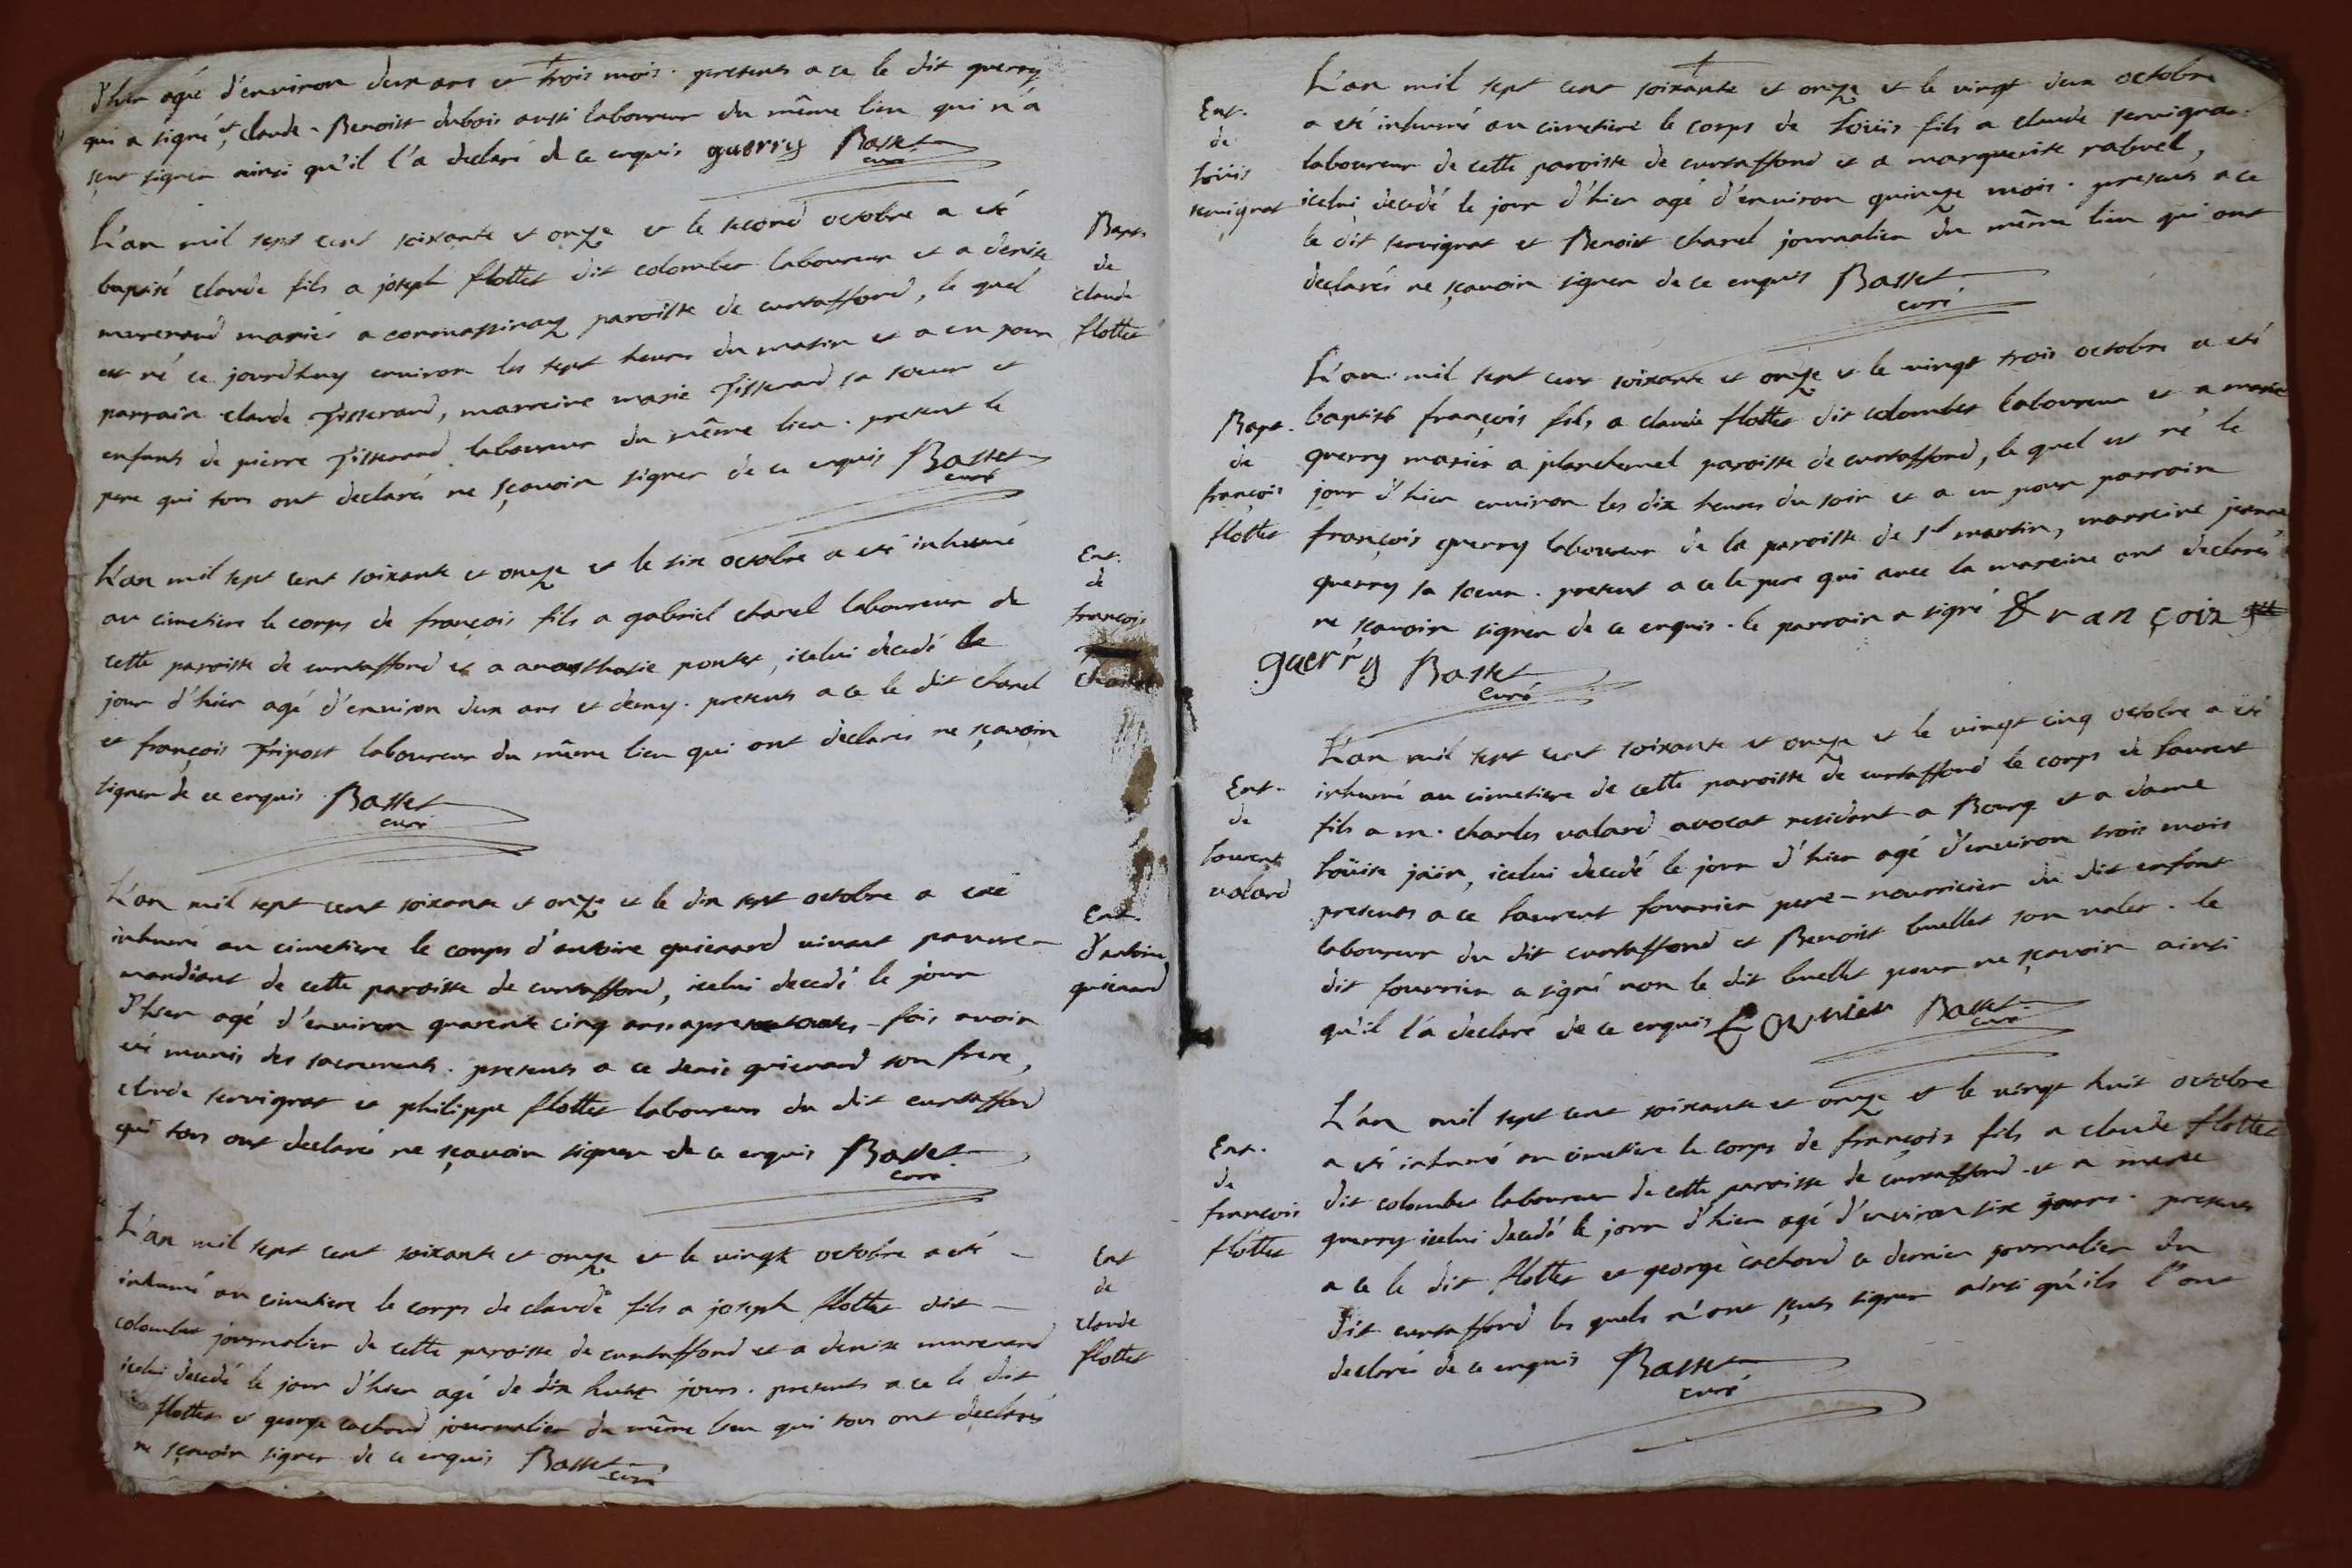 d'hier agé d'environ deux ans et trois mois. presents a ce le dit guerry
qui a signé et claude-Benoist dubois aussi laboureur du même lieu qui n'a
sçut signer ainsi qu'il l'a declaré de ce enquis guerry Basset
curé
L'an mil sept cent soixante et onze et le second octobre a eté
baptisé claude fils a joseph flottet dit colombet laboureur et a denise
murenand mariés a cormassinay paroisse de curtaffond, le quel
est né ce jourdhuy environ les sept heures du matin et a eu pour
parrain claude Tisserand, marreine marie Tisserand sa soeur et
enfants de pierre Tisserand laboureur du même lieu. present le
pere qui tous ont declarés ne sçavoir signer de ce enquis Basset
curé
Bapt.
de
claude
flottet
L'an mil sept cent soixante et onze et le six octobre a eté inhumé
au cimetiere le corps de françois fils a gabriel charel laboureur de
cette paroisse de curtaffond et a anasthasie pontet, icelui decedé le
jour d'hier agé d'environ deux ans et demy. presents a ce le dit charel
et françois Tripost laboureur du même lieu qui ont declarés ne sçavoir
signer de ce enquis Basset
curé
Ent.
de
françois
charel
L'an mil sept cent soixante et onze et le dix sept octobre a eté
inhumé au cimetiere le corps d'antoine guienard vivant pauvre-
mandiant de cette paroisse de curtaffond, icelui decedé le jour
d'hier agé d'environ quarente cinq ans apres toutes-fois avoir
eté munis des sacrements. presents a ce denis guienard son frere,
claude servignat et philippe flottet laboureurs du dit curtaffond
qui tous ont declarés ne sçavoir signer de ce enquis Basset
curé
Ent.
d'antoine
guienard
L'an mil sept cent soixante et onze et le vingt octobre a eté
inhumé au cimetiere le corps de claude fils a joseph flottet dit
colombet journalier de cette paroisse de curtaffond et a denise murenand
icelui decedé le jour d'hier agé de dix huit jours. presents a ce le dit
flottet et george cachord journalier du même lieu qui tous ont declarés
ne sçavoir signer de ce enquis Basset
curé
Ent
de
claude
flottet
L'an mil sept cent soixante et onze et le vingt deux octobre
a eté inhumé au cimetiere le corps de Loüis fils a claude servignat
laboureur de cette paroisse de curtaffond et a marguerite rabuel,
icelui decedé le jour d'hier agé d'environ quinze mois. presents a ce
le dit servignat et Benoist charel journalier du même lieu qui ont
declarés ne sçavoir signer de ce enquis Basset
curé
Ent.
de
Loüis
servignat
L'an mil sept cent soixante et onze et le vingt trois octobre a eté
baptisé françois fils a claude flottet dit colombet laboureur et a marie
guerry mariés a planchemel paroisse de curtaffond, le quel est né le
jour d'hier environ les dix heures du soir et a eu pour parrain
françois guerry laboureur de la paroisse de St martin, marreine jeanne
guerry sa soeur. present a ce le pere qui avec la mareine ont declarés
ne sçavoir signer de ce enquis. le parrain a signé François
guerry Basset
curé
Bapt.
de
françois
flottet
L'an mil sept cent soixante et onze et le vingt cinq octobre a eté
inhumé au cimetiere de cette paroisse de curtaffond le corps de Laurent
fils a m. charles valard avocat residant a Bourg et a dame
Loüise jäin, icelui decedé le jour d'hier agé d'environ trois mois
presents a ce Laurent fourrier pere-nourricier du dit enfant
laboureur du dit curtaffond et Benoist buellet son valet. le
dit fourrier a signé non le dit buellet pour ne sçavoir ainsi
qu'il l'a declaré de ce enquis Fournier Basset
curé
Ent.
de
Laurent
valard
L'an mil sept cent soixante et onze et le vingt huit octobre
a eté inhumé au cimetiere le corps de françois fils a claude flottet
dit colombet laboureur de cette paroisse de curtaffond et a marie
guerry icelui decedé le jour d'hier agé d'environ six jours. presents
a ce le dit flottet et george cachord ce dernier journalier du
dit curtaffond les quels n'ont sçuts signer ainsi qu'ils l'ont
declarés de ce enquis Basset
curé
Ent.
de
françois
flottet